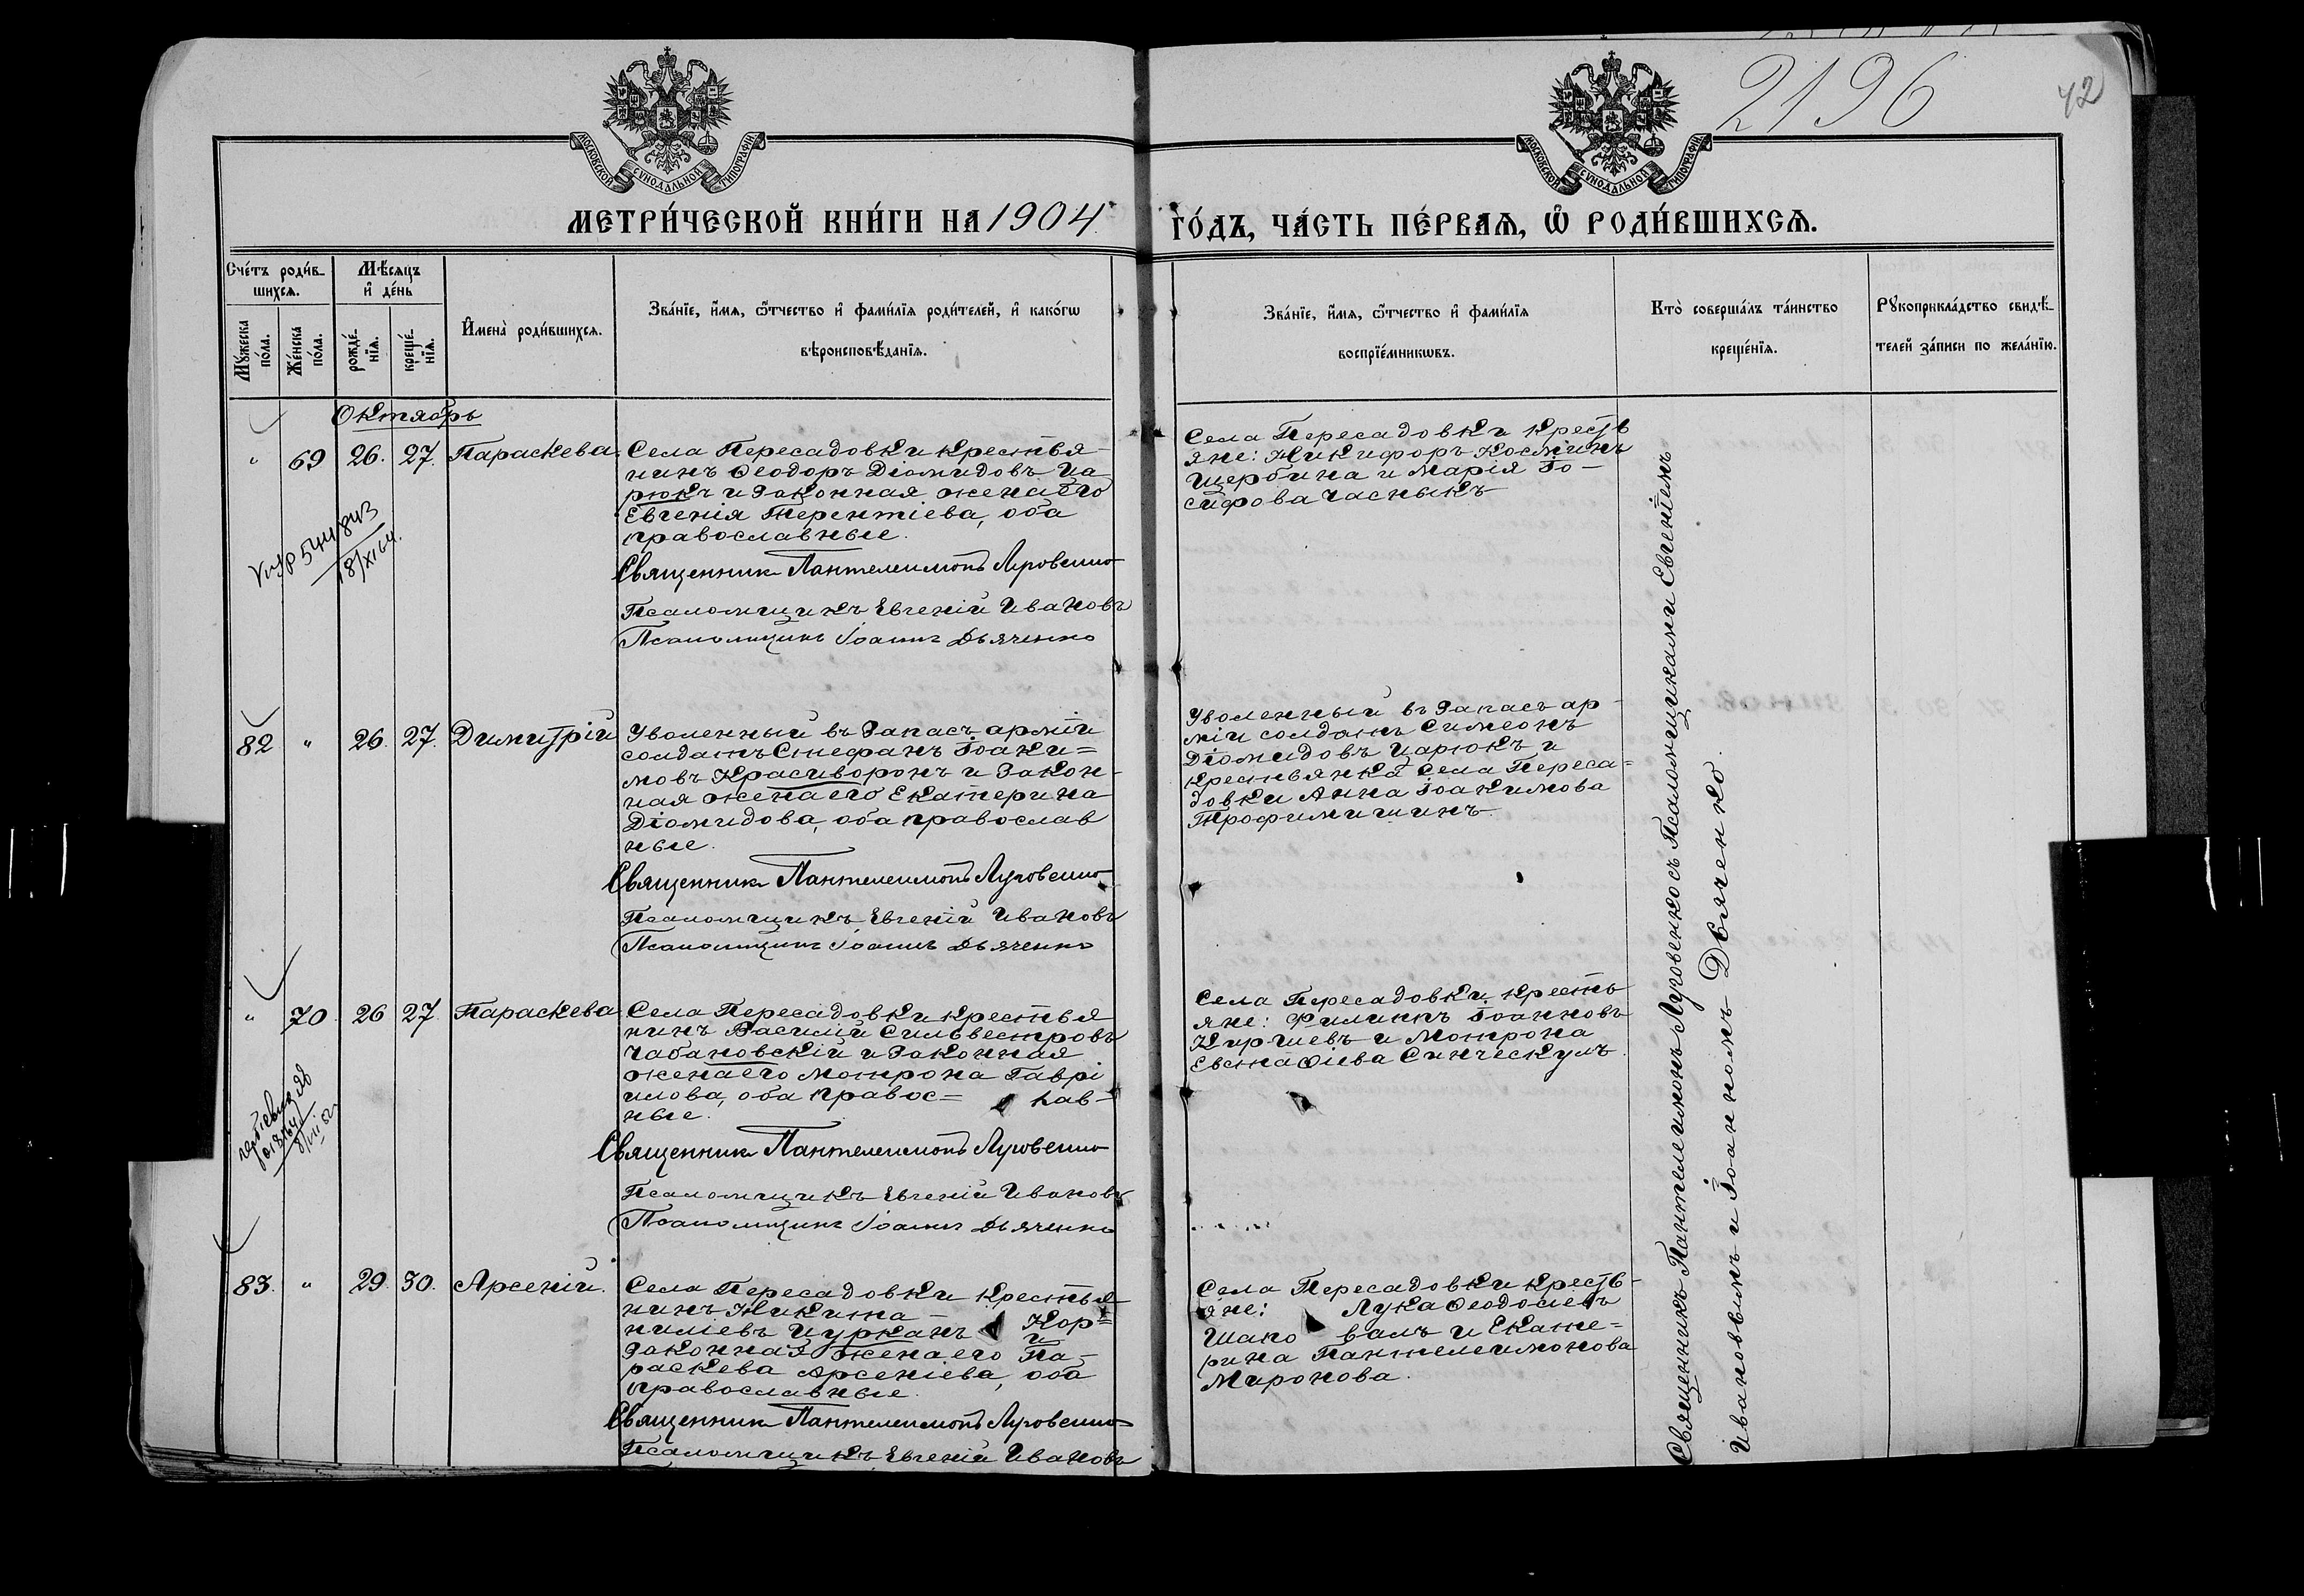 2196
42
МОСКОВСКОЙ СУНОДАЛЬНОЙ ТИПОГРАФІИ
МОСКОВСКОЙ СУНОДАЛЬНОЙ ТИПОГРАФІИ
МЕТРИ́ЧЕСКОЙ КНИ́ГИ НА 1904
ГО́ДЪ, ЧА́СТЬ ПЕ́РВАѦ, Ѡ҆ РОДИ́ВШИХСѦ.
Сче́тъ роди́в-
шихсѧ.
Мѣ́сѧцъ
и҆ де́нь
Мꙋ́жеска
по́ла.
Же́нска
по́ла.
рожде́-
нїѧ.
креще́-
нїѧ.
И҆мена̀ роди́вшихсѧ.
Зва́нїе, и҆́мѧ, ѻ҆́тчество и҆ фами́лїѧ роди́телей, и҆ како́гѡ
вѣроисповѣ́данїѧ.
Зва́нїе, и҆́мѧ, ѻ҆́тчество и҆ фами́лїѧ
воспрїе́мникѡвъ.
Кто̀ соверша́лъ та́инство
креще́нїѧ.
Рꙋкоприкла́дство свидѣ́-
телей за́писи по жела́нїю.
Октябрь
" 69 26. 27. Параскева
Села Пересадовки крестья-
нинъ Ѳеодоръ Діомидовъ Ца-
рюкъ и законная жена его
Евгенія Терентіева, оба
православные.
Священникъ Пантелеимонъ Луговенко
Псаломщикъ Евгеній Ивановъ
Псаломщикъ Іоаннъ Дьяченко
Села Пересадовки кресть
яне: Никифоръ Косминъ
Щербина и Марія Іо-
сифова Часныкъ
18/XI 64.
82 " 26. 27. Димитрій
Уволенный въ запасъ арміи
солдатъ Стефанъ Іоаки=
мовъ Красиворонъ и закон-
ная жена его Екатерина
Діомидова, оба православ
ные.
Священникъ Пантелеимонъ Луговенко
Псаломщикъ Евгеній Ивановъ
Псаломщикъ Іоаннъ Дьяченко
Уволенный въ запасъ ар-
міи солдатъ Симеонъ
Діомидовъ Царюкъ и
крестьянка села Переса=
довки Анна Іоакимова
Трофимишинъ
" 70 26 27. Параскева
Села Пересадовки крестья
нинъ Василій Сильвестровъ
Чабановскій и законная
жена его Мотрона Гаврі
илова, оба правос= лав-
ные.
Священникъ Пантелеимонъ Луговенко
Псаломщикъ Евгеній Ивановъ
Псаломщикъ Іоаннъ Дьяченко
Села Пересадовки кресть
яне: Филиппъ Іоанновъ
Киргиевъ и Мотрона
Евстафіева Синческулъ
83. " 29. 30. Арсеній.
Села Пересадовки крестья
нинъ Никита Кор=
ниліевъ Цурканъ и
законная жена его Па-
раскева Арсеніева, оба
православные.
Священникъ Пантелеимонъ Луговенко
Псаломщикъ Евгеній Ивановъ
Села Пересадовки кресть-
яне: Лука Ѳеодосіевъ
Шапо валъ и Екате=
рина Пантелеимонова
Миронова.
Священникъ Пантелеимонъ Луговенко съ Псаломщиками Евгеніемъ
Ивановымъ и Іоанномъ Дьяченко.